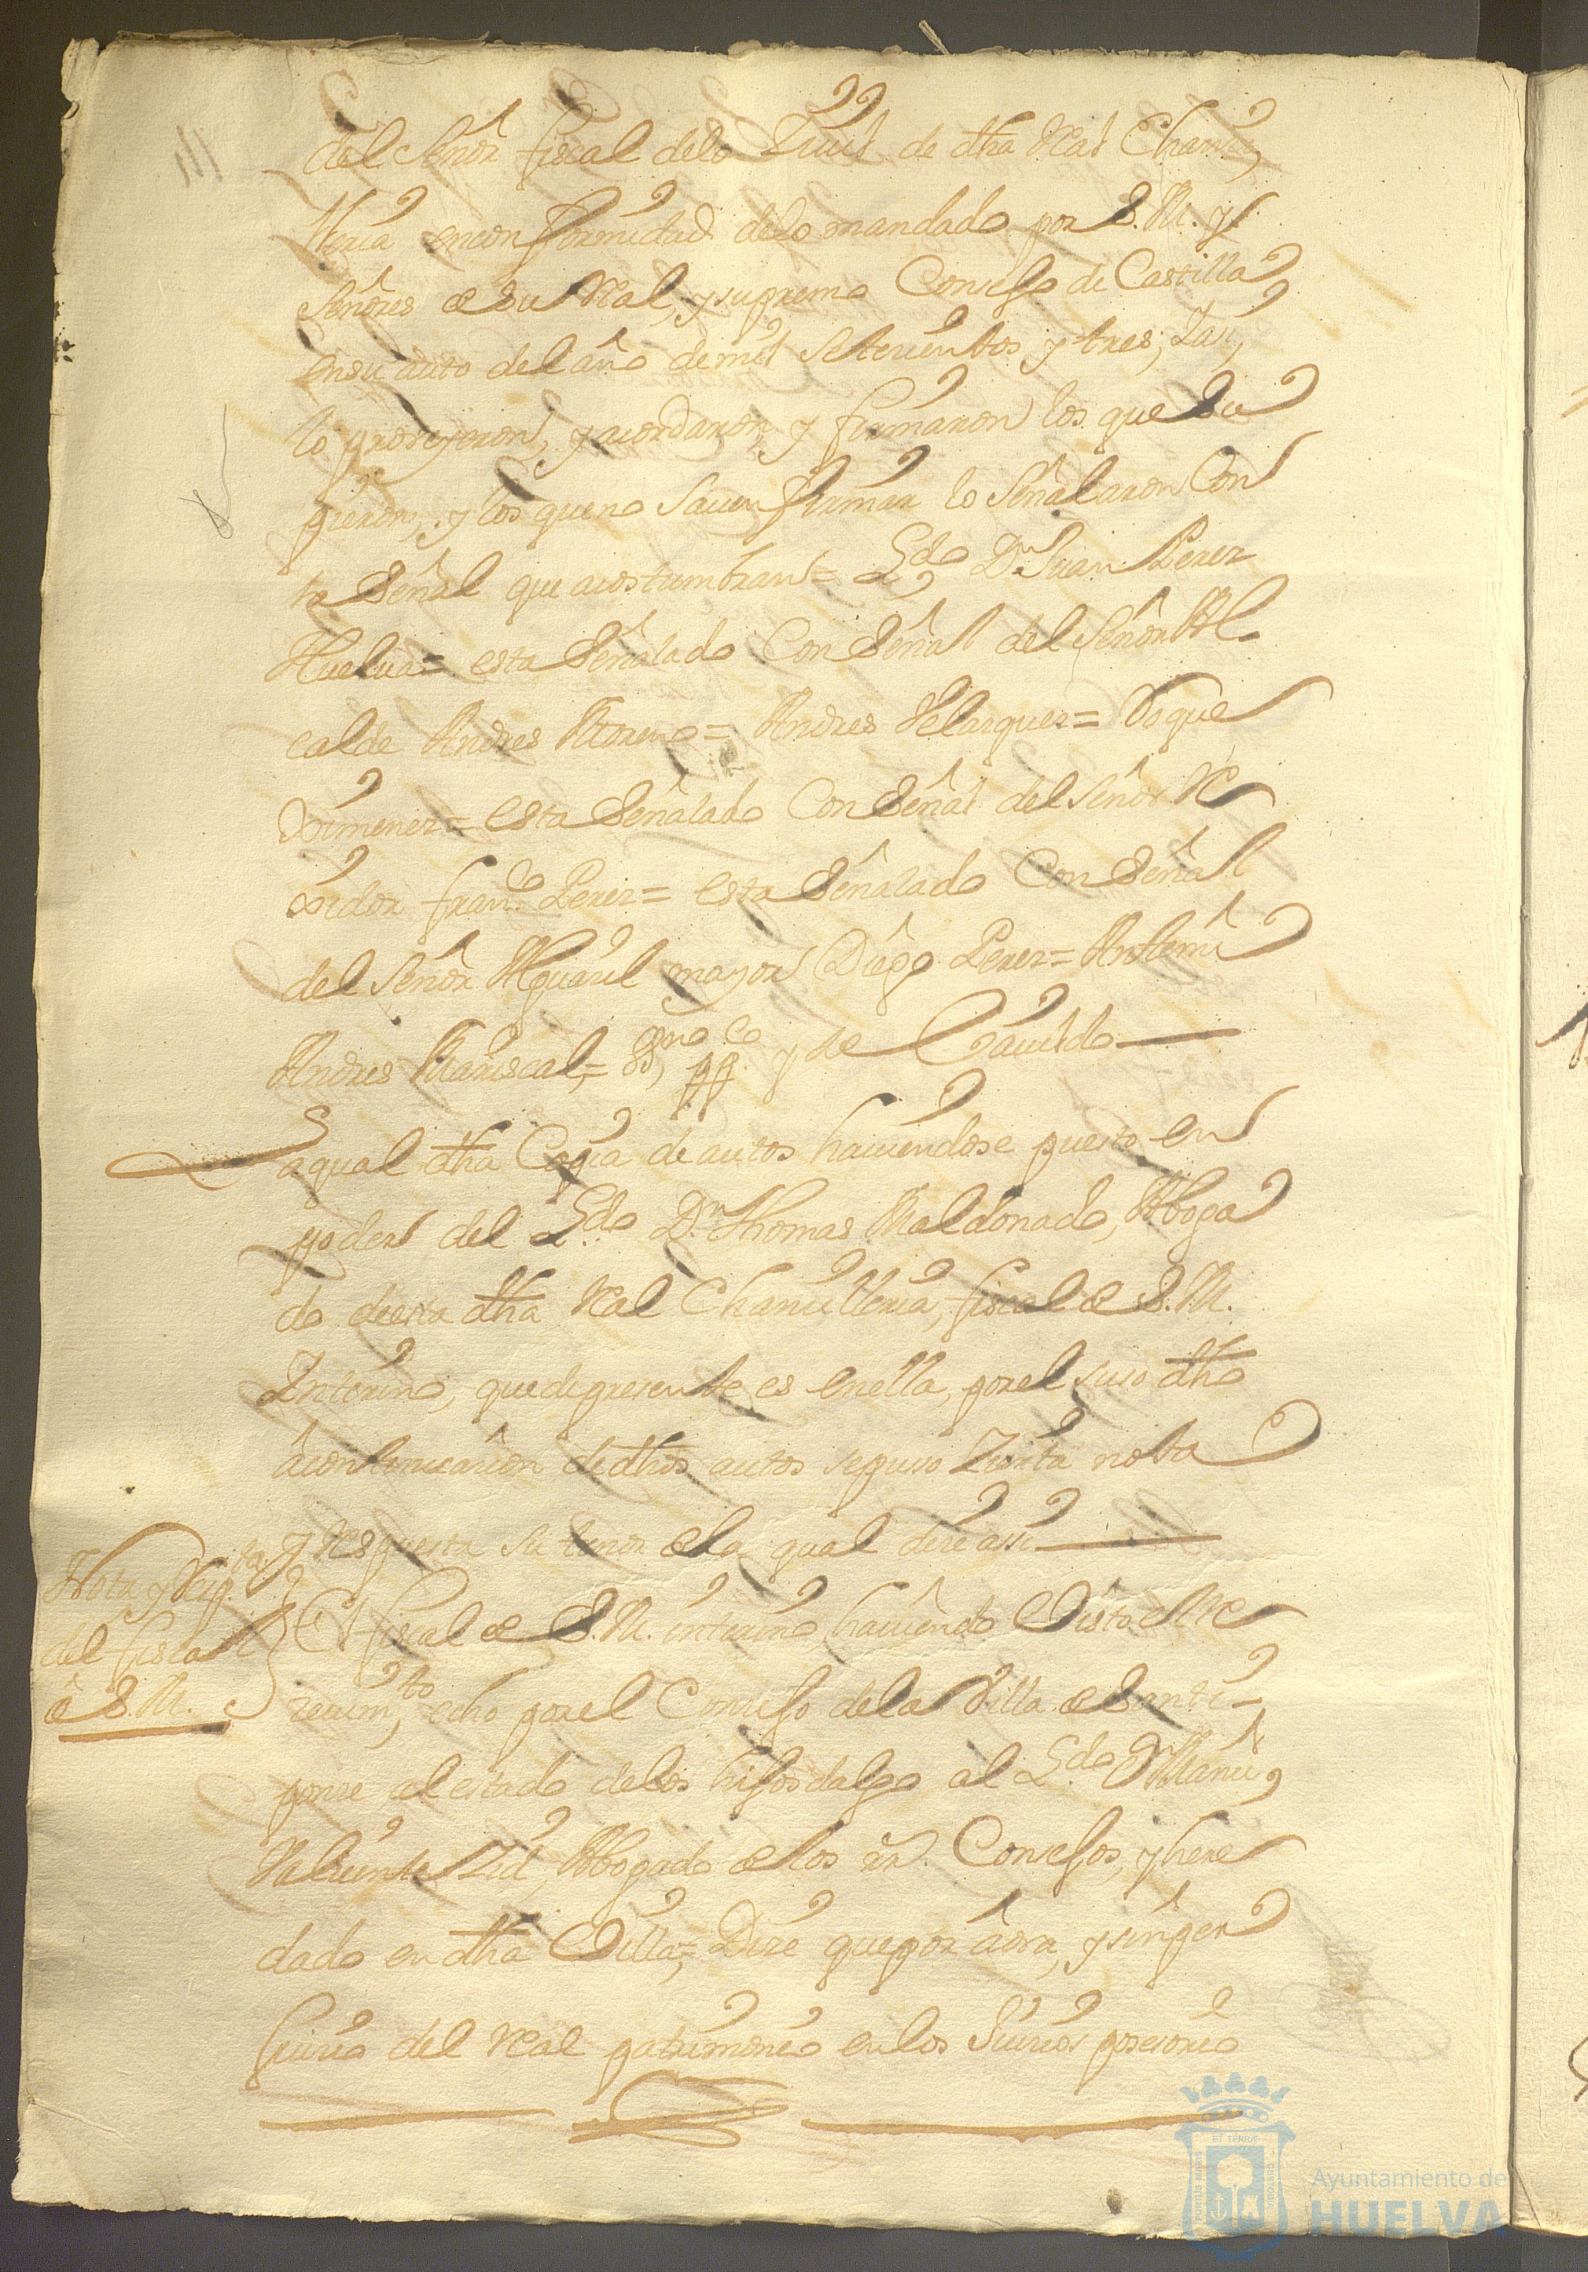 del Señor fiscal delo Zivil de dha Real Chanzi,
lleria enconformidad delo mandado por S.M. y
Señores de Su Real, y supremo Consejo de Castilla
ensu auto del año de mil Setecientos y tres; Y asi,
lo proveyeron, y acordaron, y firmaron los que Su
pieron, y los que no Saven firmar lo Señalaron Con
la Señal que acostumbran = Lzdo Dn Juan Perez
Huelva = esta Señalado Con Señal del Señor Al
calde Andres Moreno = Andres Velazquez = Roque
Ximenez = esta Señalado Con Señal del Señor Re
xidor Franco Perez = esta Señalado Con Señal
del Señor Alguazil mayor Diego Perez = Antemi
Andres Mariscal, = ssno ppco y de Cavildo
Laqual dha Copia de autos haviendose puesto en
poder del Lzdo Dn Thomas Maldonado, Aboga
do de esta dha Real Chanzilleria, fiscal de S.M.
Interino, que de presente es en ella, por el suso dho
a continuacion de dhos autos se puso Zierta nota
y Respuesta su tenor de la qual dize assi
Nota y Resp.ta
del fiscal
de S.M.
El fiscal de S.M. interino haviendo Visto el Re
zevim,to echo por el Consejo de la Villa de Santi
ponze al estado de los hijosdalgo al Lzdo Dn Manl,
Valiente Zid, Abogado de los Rs. Consejos, y here
dado en dha Villa, = Dize que por aora, y sin per
juizio del Real patrimonio en los Juizios posesorio
111
Ayuntamiento de
HUELVA